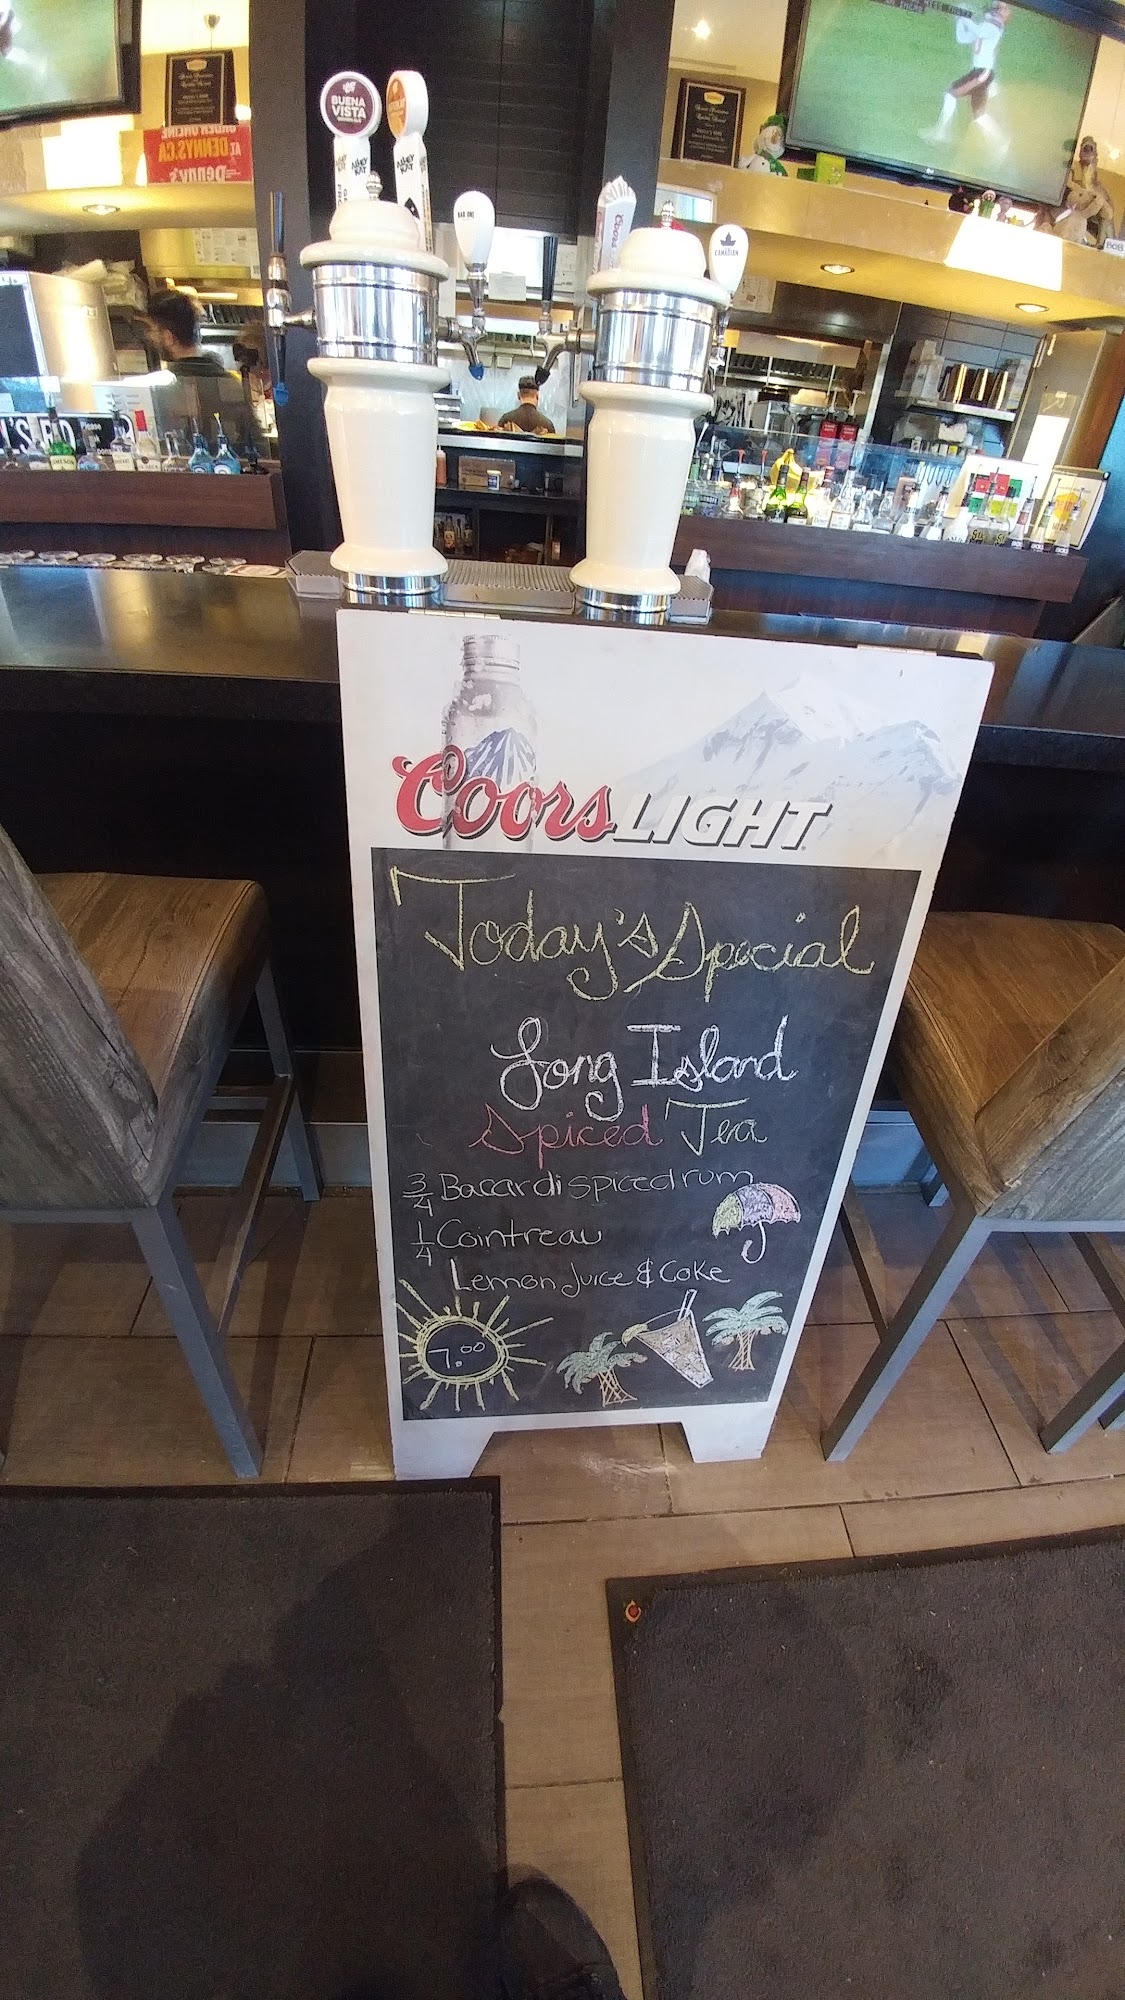 BUENA
VISTA
ORDER ONLINE
AT
DENNYS.CA
Denny's
BAR ONE
Coors
CANADIAN
BOB
Please
Coors LIGHT
Today's Special
Long Island
Spiced Tea
3/4 Bacardi spiced rum
1/4 Cointreau
Lemon Juice & Coke
7.00